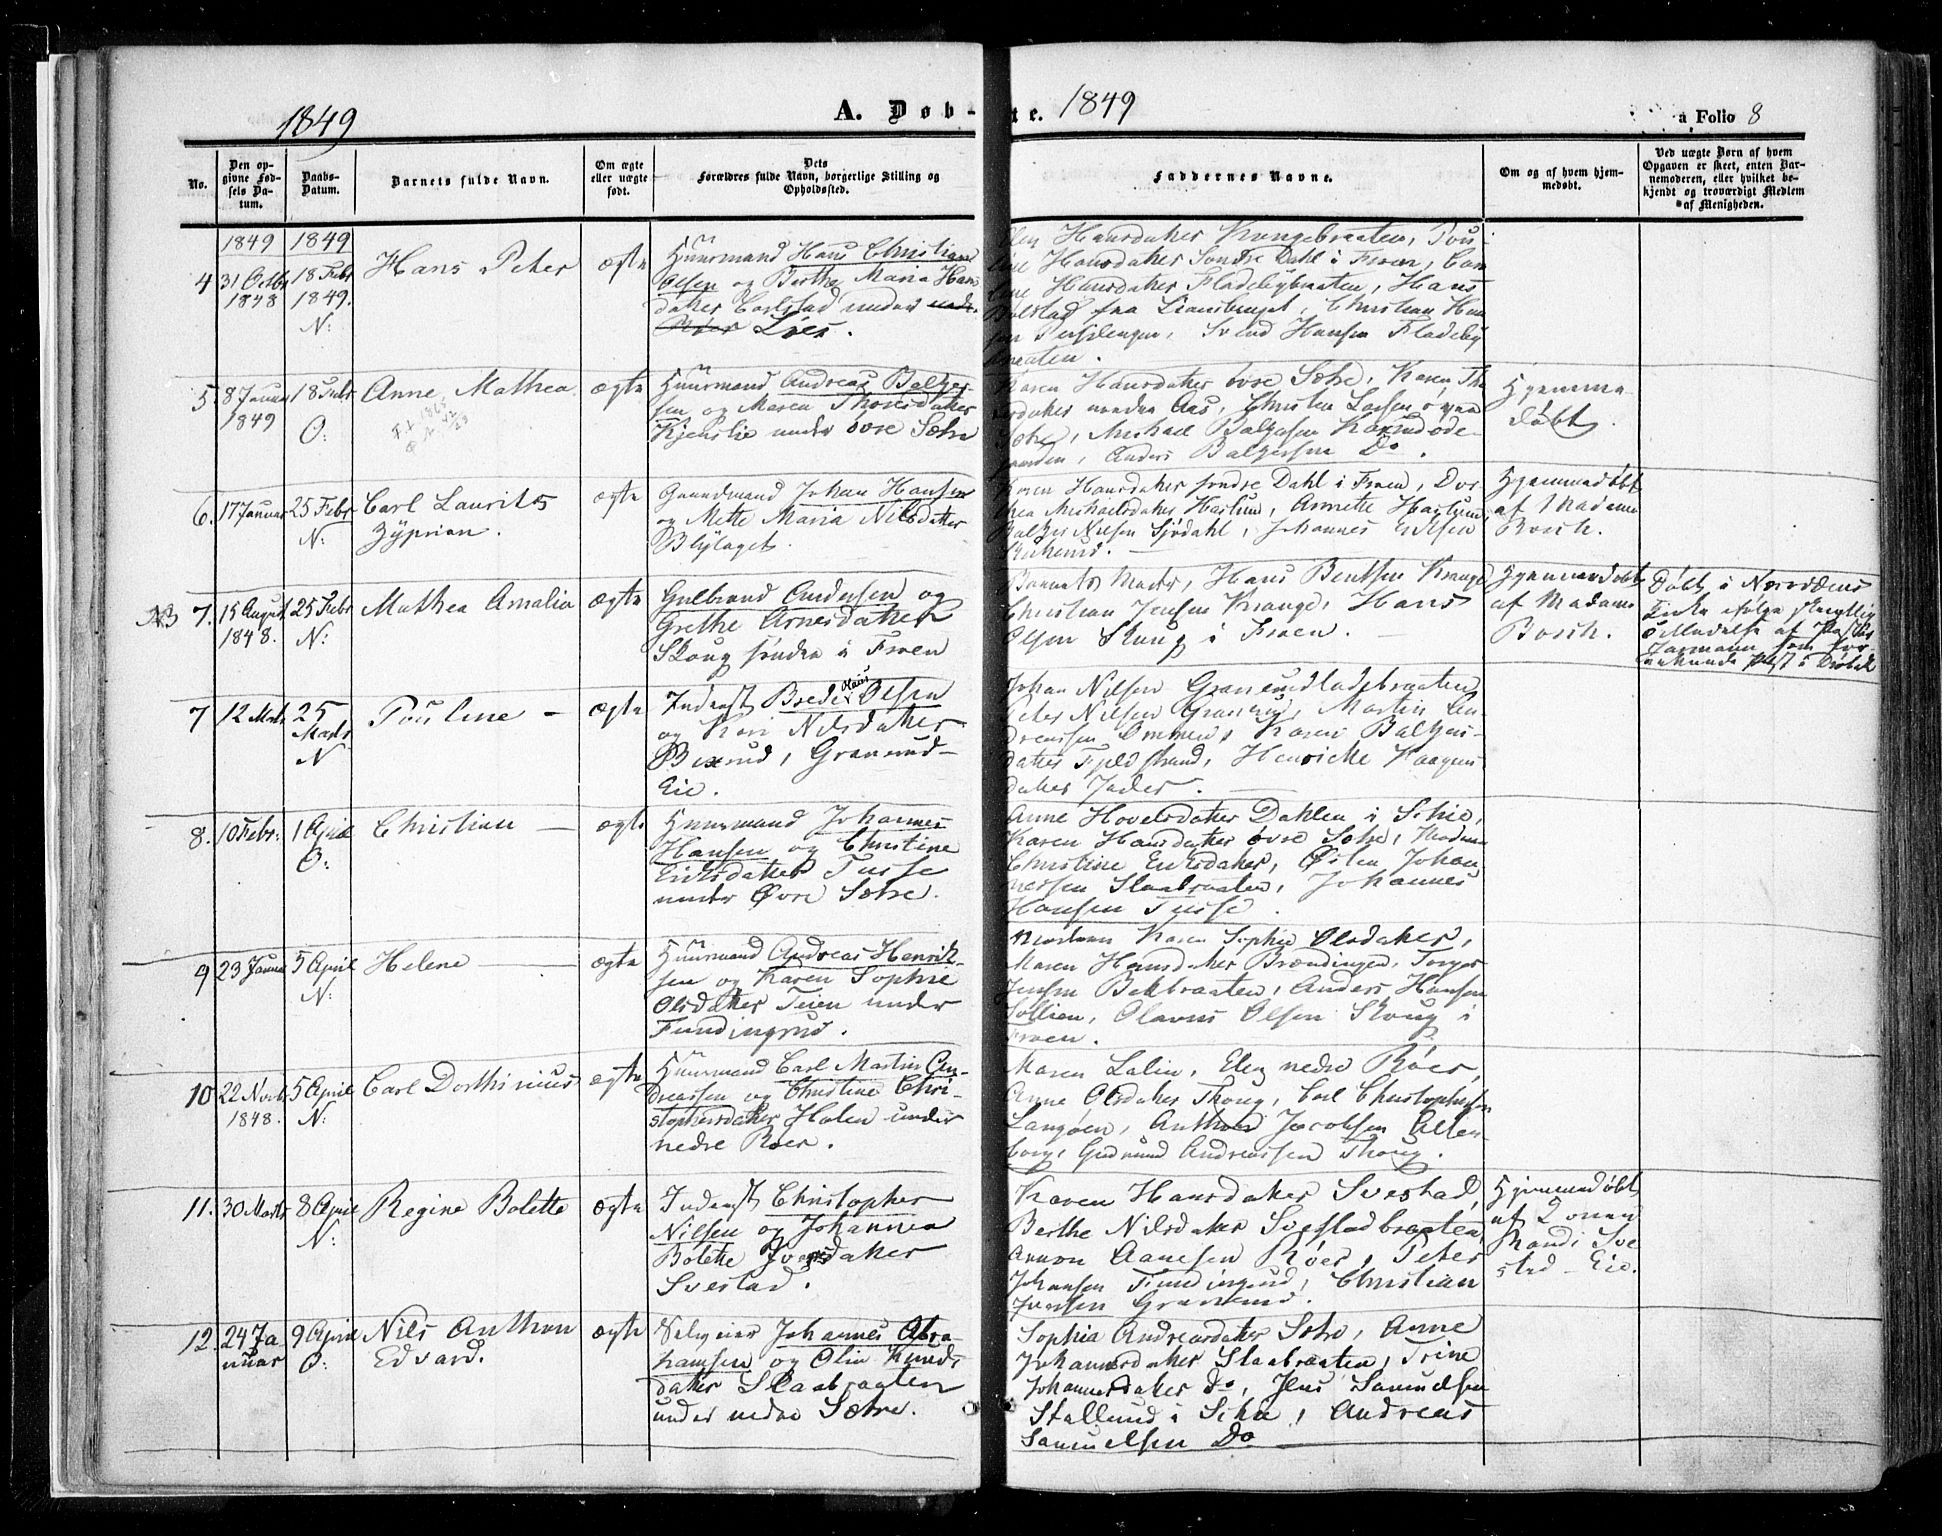 1849
A. Døb-
te. 1849
a Folio 8
No.
Den op-
givne Fød-
sels Da-
tum.
Daabs-
Datum.
Barnets fulde Navn.
Om ægte
eller uægte
født.
Dets
Forældres fulde Navn, borgerlige Stilling og
Opholdssted.
Faddernes Navne.
Om og af hvem hjem-
medøbt.
Ved uægte Børn af hvem
Opgaven er skeet, enten Bar-
nemoderen, eller hvilket be-
kjendt og troværdigt Medlem
af Menigheden.
1849
1849
4
31 Octbr
1848
18 Febr
1849.
N:
Hans Peter
ægte
Huusmand Hans Christian
Olsen og Berthe Maria Hans
datter Carlstad under
Hansdatter Krangebraaten,
Hansdatter Sondre Dahl i Froen,
Hansdatter Fladebybraaten, Hans
Christian
Svend Hansen Fladeby
braaten.
5.
8 Januar
1849
18 Febr
O:
Anne Mathea
ægte
Huusmand Andreas Balzer-
sen og Maren Thoresdatter
Kjenslie under övre Sætre
Karen Hansdatter övre Sætre, Karen Tho
resdatter nordre Aas, Christen Larsen
Sætre, Michael Balzersen
Anders Balzersen Do.
Hjemme-
døbt.
6.
17 Januar
25 Febr
N:
Carl Laurits
Zyprian.
ægte
Gaardmand Johan Hansen
og Mette Maria Nilsdatter
Blylaget.
Karen Hansdatter søndre Dahl i Froen, Dor
thea Michaelsdatter Haslum, Annette Haslum,
Balzer Nilsen Sjødahl, Johannes
Hjemmedøbt
af Madame
Bosch.
NB
7.
15 August
1848.
25 Febr
N:
Mathea Amalia
ægte
Gulbrand Andersen og
Grethe Arnesdatter
Skoug søndre i Froen
Barnets Moder, Hans Bentsen Krange
Christian Jensen Krange, Hans
Olsen Skoug i Froen.
Hjemmedøbt
af Madame
Bosch.
Døbt i Nesoddens
Kirke ifølge skriftlig
7
12 Marts
25
Marts
N
Pouline —
ægte
Inderst Brede Olaus Olsen
og Kari Nilsdatter
Bexrud, Granerud-
Eie.
Johan Nilsen Granerudladebraaten
Peter Nilsen Granerud, Martin An
dreassen Ommen, Karen Balzers-
datter Fjeldstrand, Henricke Haagens
datter Jader.
8.
10 Febr.
1 April
O:
Christian —
ægte
Huusmand Johannes
Hansen og Christine
Erichsdatter Tusse
under Øvre Sætre.
Anne Hovelsdatter Dahlen i Schie,
Karen Hansdatter övre Sætre, Moderen
Christine Eriksdatter, Østen Johan
nessen Slaabraaten, Johannes
Hansen Tusse.
9
23 Januar
5 April
N:
Helene
ægte
Huusmand Andreas Henrik-
sen og Karen Sophie
Olsdatter Teien under
Fundingrud.
Moderen Karen Sophie Olsdatter,
Maren Hansdatter Brændingen, Torger
Jensen Bekbraaten, Anders Hansen
Sollien, Olavus Olsen Skoug i
Froen.
10
22 Novb
1848.
5 April
N:
Carl Dorthinius
ægte
Huusmand Carl Martin An-
dreassen og Christine Chri-
stophersdatter Holen under
nedre Roer.
Maren Lalin, Elen nedre Röer,
Anne Olsdatter Thoug, Carl Christophersen
Langöen, Anthon Jacobsen Alten-
borg, Gudmund Andreassen Thoug.
11.
30 Marts
8 April
N:
Regine Bolette
ægte
Inderst Christopher
Nilsen og Johannea
Bolette Iversdatter
Svestad.
Karen Hansdatter Svestad,
Berthe Nilsdatter Svestadbraaten,
Aanesen Röer, Peter
Johansen Fundingrud, Christian
Iversen Granerud.
Hjemmedøbt
af
Svestad - Eie.
12.
24 Ja
nuar
9 April
O:
Nils Anthon
Edvard.
ægte
Selveier Johannes Abra
hamsen og Olia Knuds
datter Slaabraaten
under nedre Sætre.
Sophia Andreasdatter Sætre, Anne
Johannesdatter Slaabraaten, Trine
Johannesdatter do, Jens Samuelsen
Stallerud i Schie, Andreas
Samuelsen Do